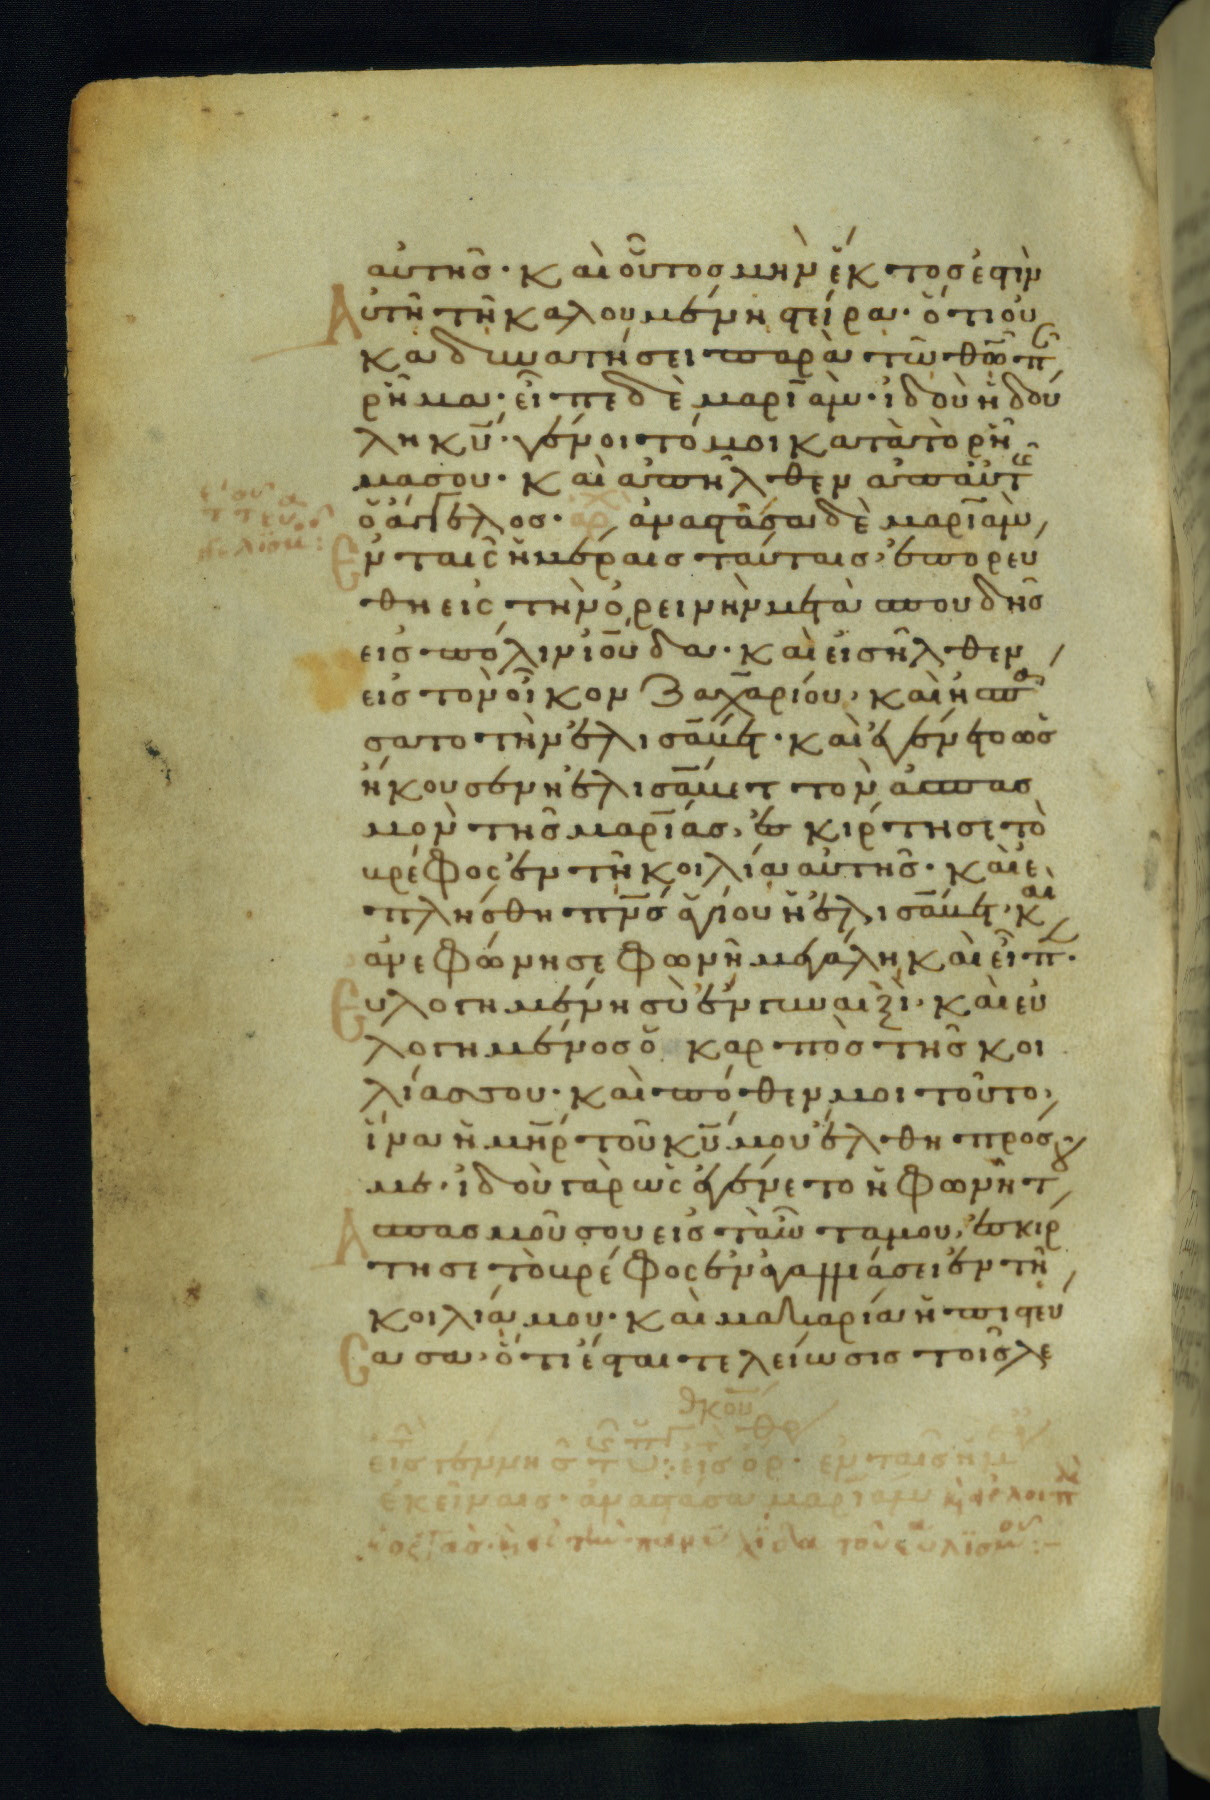 αὐτῆς· καὶ οὗτος μὴν ἕκτος ἐστὶν
Αὐτῆ τῆ καλουμένη στείρα· ὅτι οὐ
κ ἀδυνατήσει παρὰ τῶ θῶ π
ρῆμα· εἶπε δὲ μαριὰμ· ἰδοὺ ἡ δού
λη κυ· γένοιτό μοι κατὰ τὸ ρῆ
μα σου· καὶ ἀπῆλθεν ἀπ αὐτ
ὁ ἄγγελος· ἀρχ ἀναστᾶσα δὲ μαριὰμ
Ἐν ταῖς ἡμέραις ταύταις, ἐπορευ
θη εἰς τὴν ὀρεινὴν μετὰ σπουδῆς
εἰς πόλιν ἰούδα· καὶ εἰσῆλθεν
εἰς τὸν οἶκον Ζαχαρίου, καὶ ἠσπ
σατο τὴν ἐλισάμετ· καὶ ἐγένετο ὡς
ἤκουσεν ἡ ἐλισάμετ τὸν ἀσπασ
μὸν τῆς μαρίας, ἐσκίρτησε τὸ
βρέφος ἐν τῆ κοιλία αὐτῆς· καὶ ἐ
πλήσθη πνς ἁγίου ἡ ἐλισάμετ· καὶ
ἀνεφώνησε φωνῆ μεγάλη καὶ εἶπ·
Εὐλογημένη σὺ ἐν γυναιξὶ· καὶ εὐ
λογημένος ὁ καρπὸς τῆς κοι
λίας σου· καὶ πόθεν μοι τοῦτο,
ἵνα ἡ μηρ τοῦ κυ μου ἔλθη πρός
με· ἰδοὺ γὰρ ὡς ἐγένετο ἡ φωνὴ τοῦ
Ἀσπασμοῦ σου εἰς τὰ ὦτα μου, ἐσκίρ
τησε τὸ βρέφος ἐν ἀγαλλιάσει ἐν τῆ
κοιλία μου· καὶ μακαρία ἡ πιστεύ
Σασα· ὅτι ἔσται τελείωσις τοῖς λε
εἰς ὀρ· ἐν ταῖς ἡμ
ἐκείναις· ἀναστᾶσα μαριὰμ